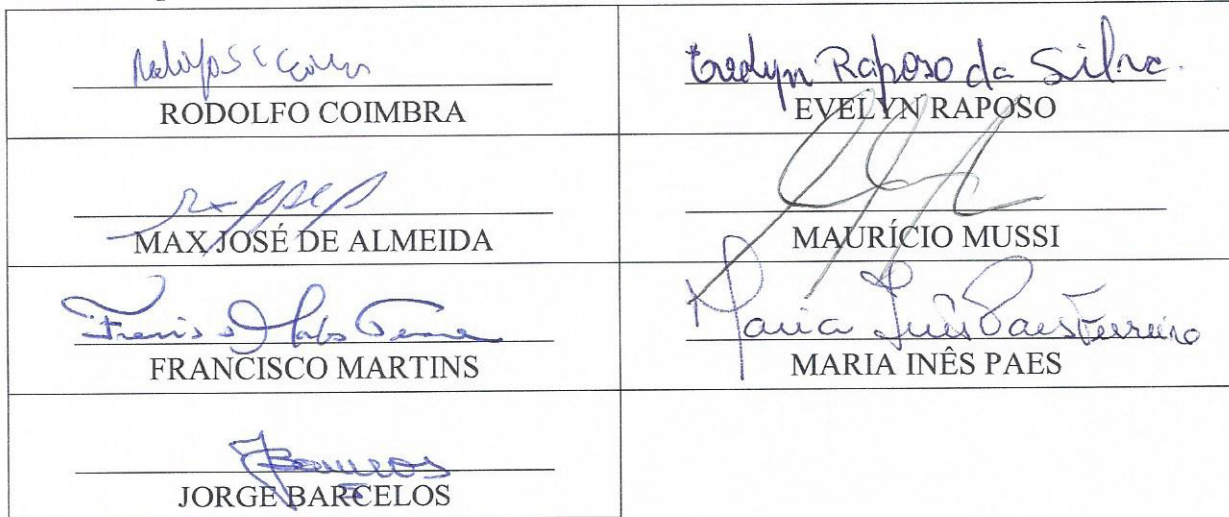 RODOLFO COIMBRA
Evelyn Raposo da Silva
EVELYN RAPOSO
MAX JOSÉ DE ALMEIDA
MAURÍCIO MUSSI
FRANCISCO MARTINS
Maria Inês Paes Ferreira
MARIA INÊS PAES
JBarcelos
JORGE BARCELOS